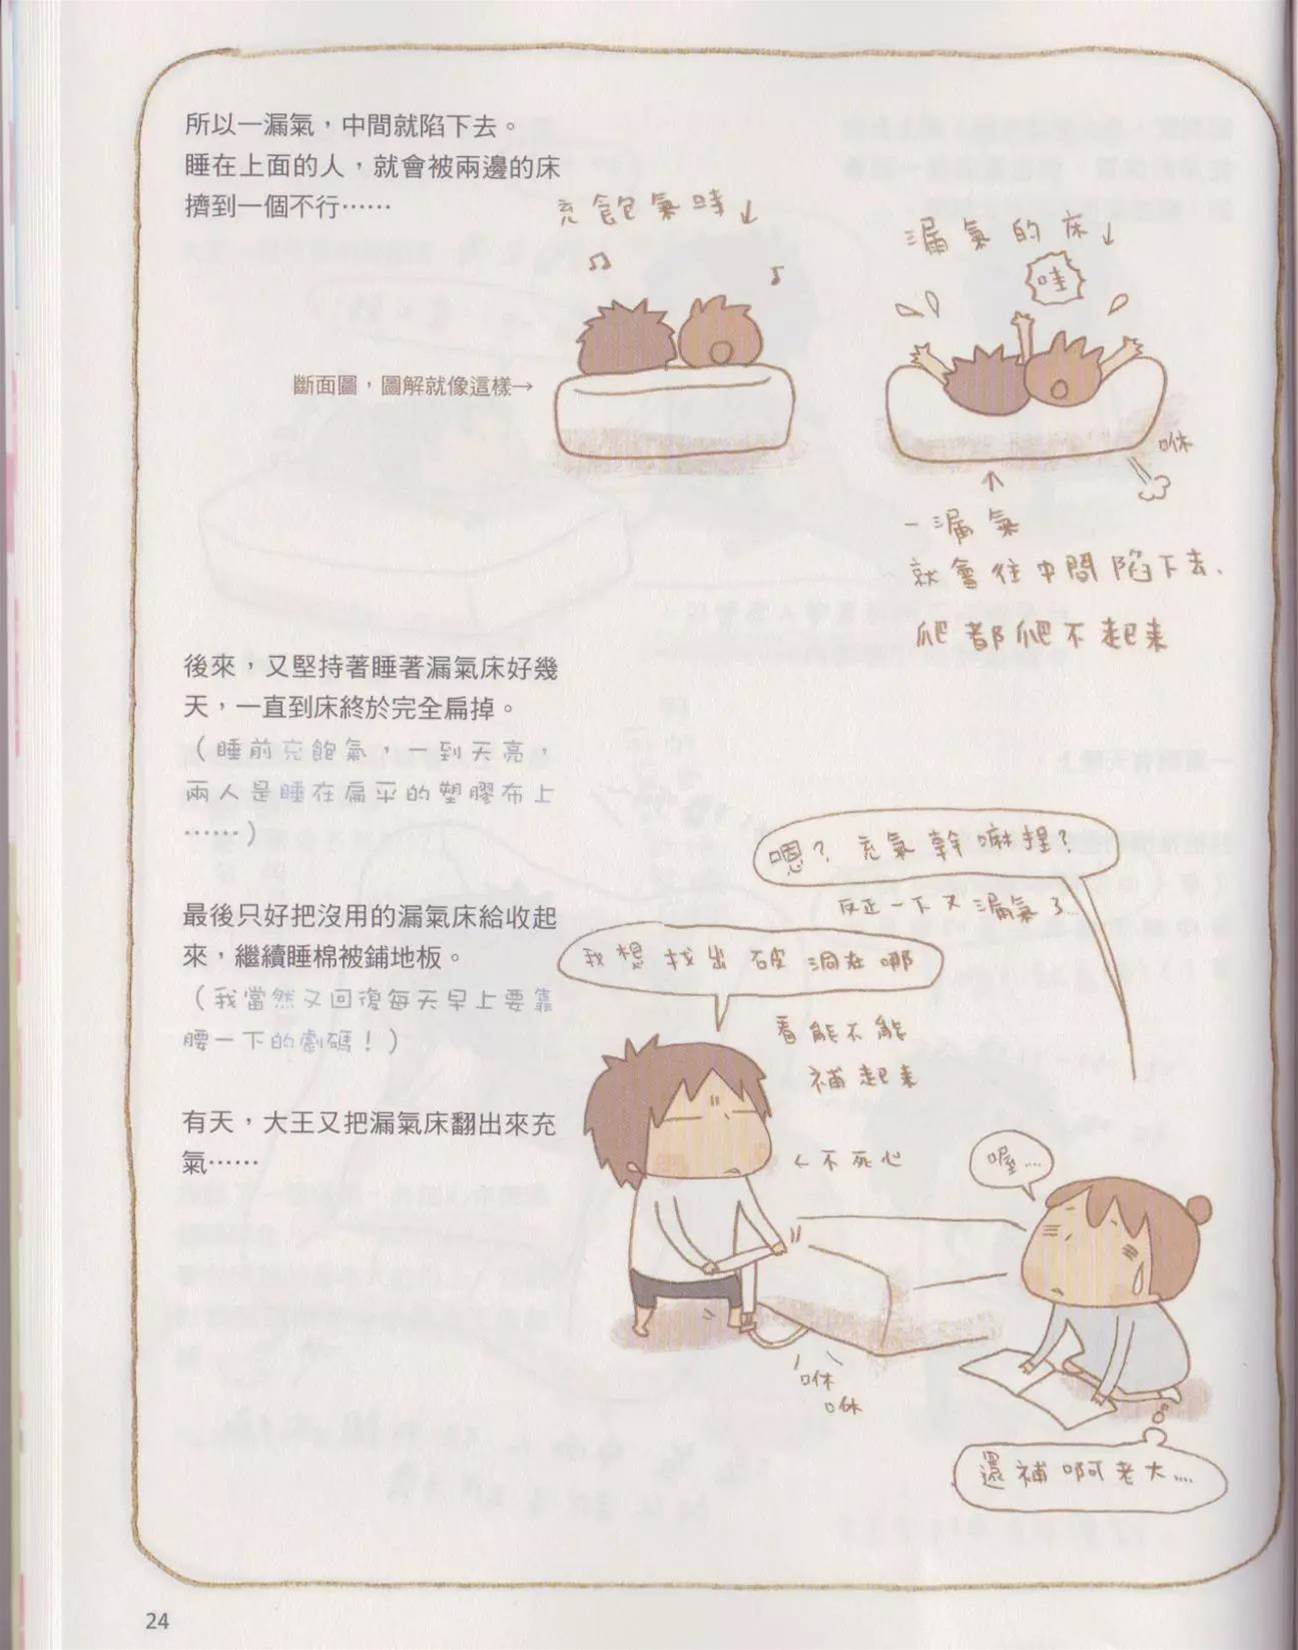 所以一漏氣，中間就陷下去。
睡在上面的人，就會被兩邊的床
擠到一個不行⋯⋯
充飽氣時↓
漏氣的床↓
哇
斷面圖，圖解就像這樣→
咻
↑
一漏氣
就會往中間陷下去、
爬都爬不起來
後來，又堅持著睡著漏氣床好幾
天，一直到床終於完全扁掉。
（睡前充飽氣，一到天亮，
兩人是睡在扁平的塑膠布上
⋯⋯）
嗯？充氣幹嘛捏？
反正一下又漏氣了…
最後只好把沒用的漏氣床給收起
來，繼續睡棉被鋪地板。
（我當然又回復每天早上要靠
腰一下的劇碼！）
我想找出破洞在哪
看能不能
補起來
有天，大王又把漏氣床翻出來充
氣⋯⋯
←不死心
喔…
咻
咻
還補啊老大…
24